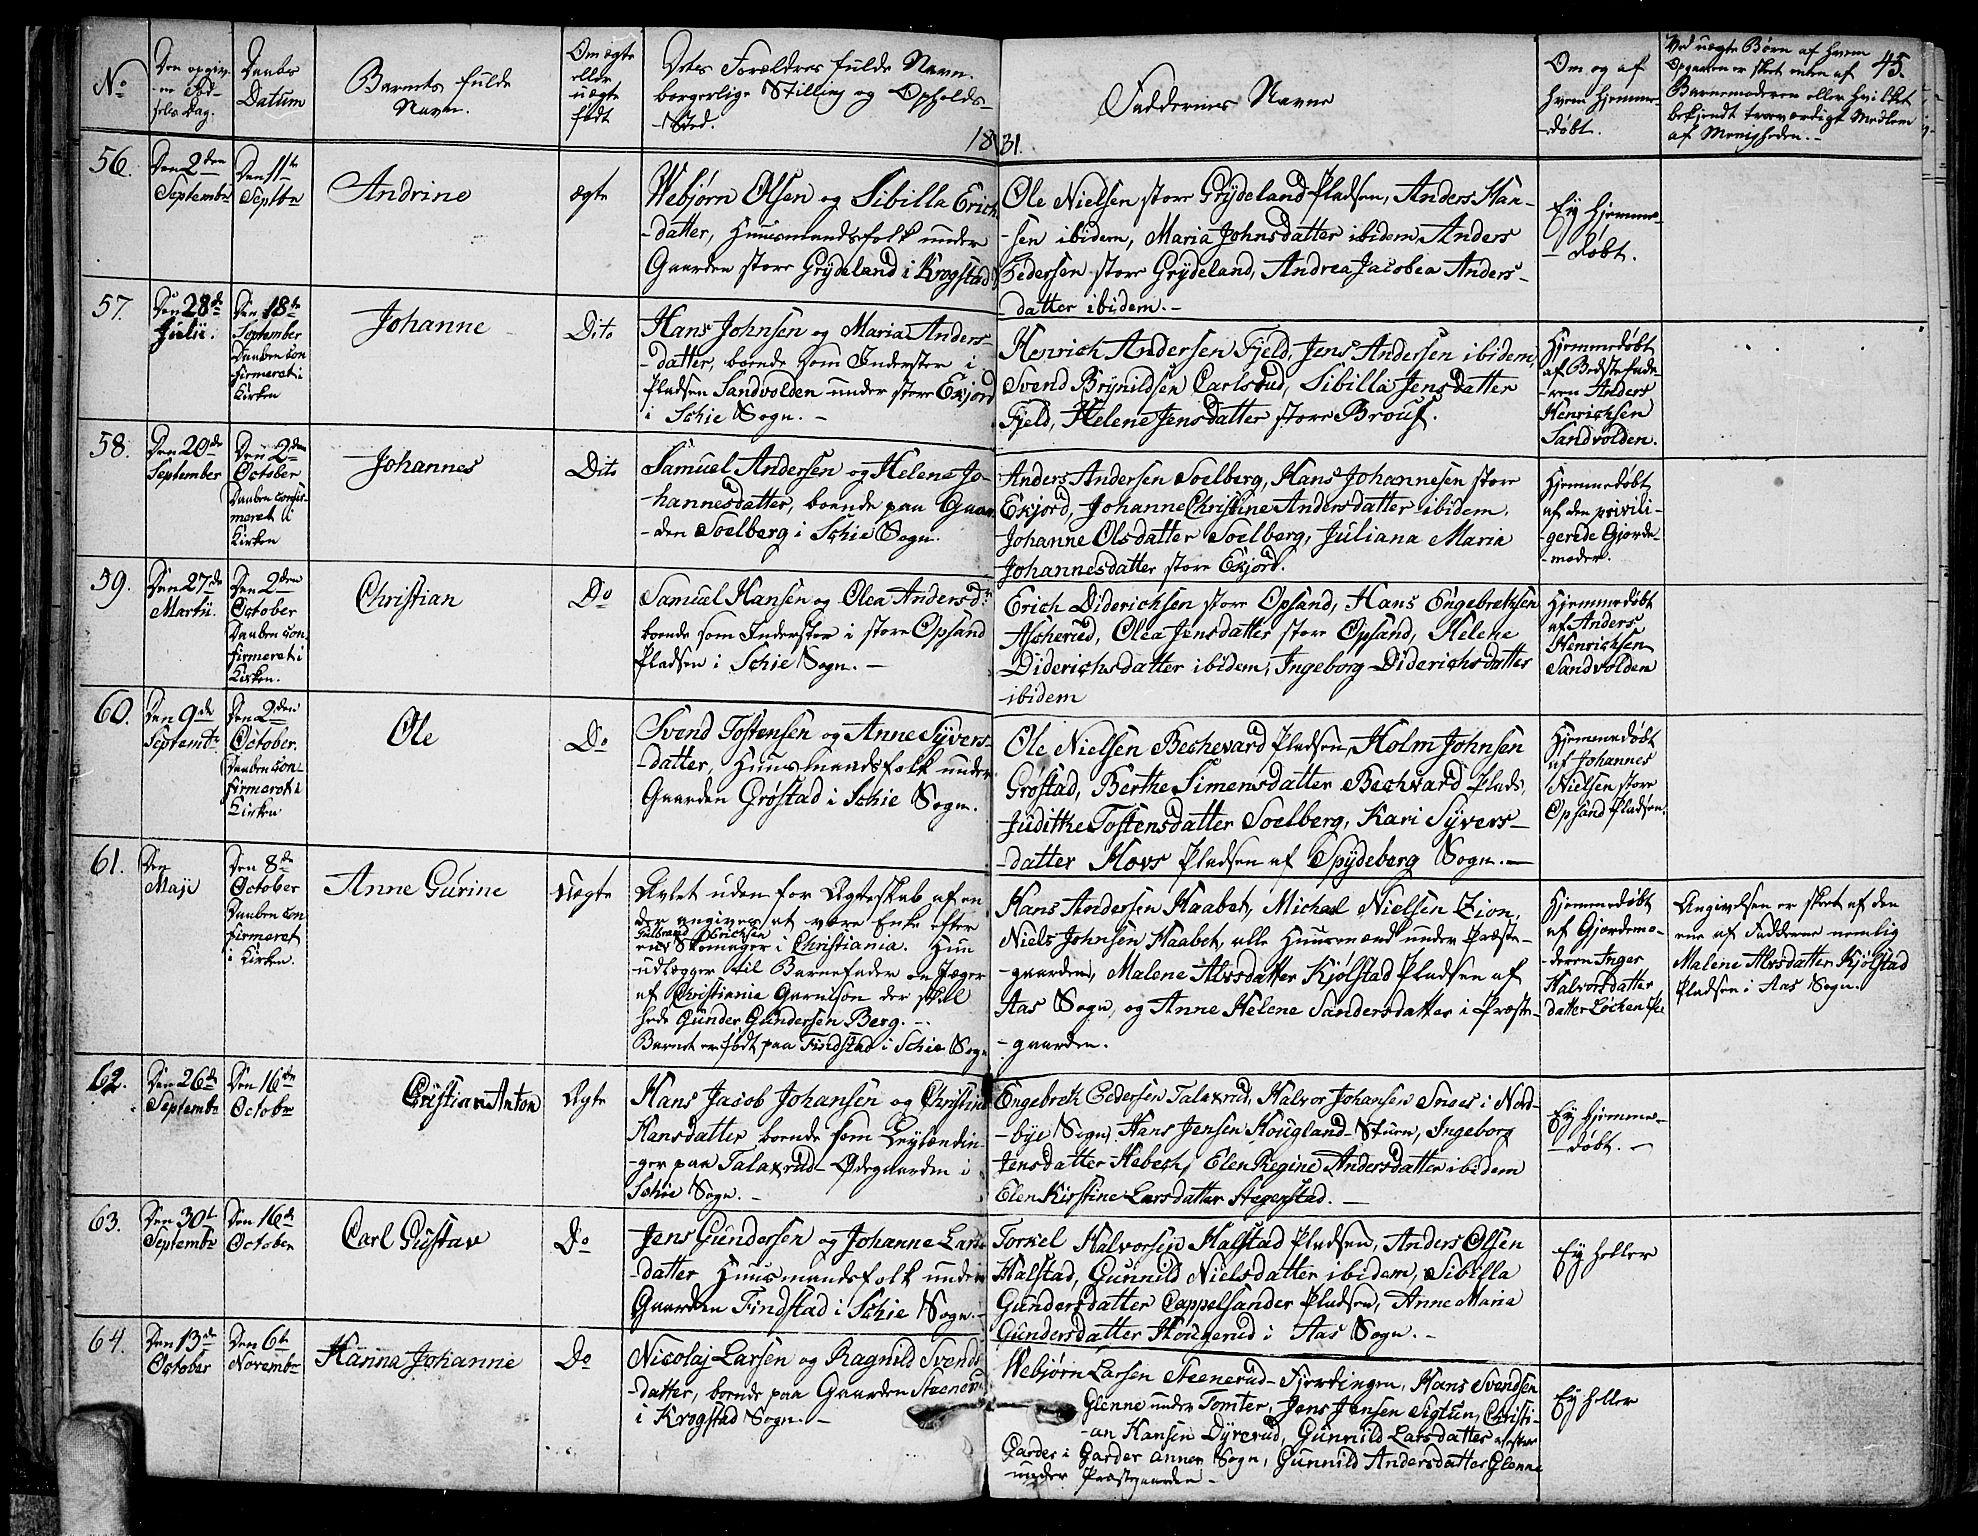 No
Den opgiv-
-ne Fød-
sels Dag.
Daabs
Datum
Barnets fulde
Navn.
Om ægte
eller
uægte
født
Dets Forældres fulde Navn.
borgerlige Stilling og Opholds-
-Sted.
1831.
Faddernes Navne
Om og af
hvem hjemme-
-døbt.
Ved uægte Børn af hvem
Opgaven er skeet enten af
Barnemoderen eller hvilket
bekjendt troværdigt Medlem
af Menigheden.-
45.
56.
Den 2den
Septembr
Den 11te
Septbr
Andrine
ægte
Webjørn Olsen og Sibilla Erich
-datter, Huusmandsfolk under
Gaarden store Grydeland i Krogstad S
Ole Nielsen store Grydeland Pladsen, Anders Han-
-sen ibidem, Maria Johnsdatter ibidem, Anders
Pedersen store Grydeland, Andrea Jacobea Anders-
-datter ibidem.-
Ey hjemme-
- døbt.
57.
Den 28de
Julii.
Den 18te
September
Daaben con-
-firmeret i
Kirken
Johanne
Dito
Hans Johnsen og Maria Anders
-datter, boende som Inderster i
Pladsen Sandvolden under store Ekjord
i Schie Sogn.-
Henrich Andersen Fjeld, Jens Andersen ibidem,
Svend Brynildsen Carlsrud, Sibilla Jensdatter
Fjeld, Helene Jensdatter store Brous.
Hjemmedøbt
af Bedstefade-
-ren Anders
Henrichsen
Sandvolden.
58.
Den 20de
September
Den 2den
October
Daaben confir-
meret i
Kirken
Johannes
Dito
Samuel Andersen og Helene Jo-
-hannesdatter, boende paa Gaar-
-den Soelberg i Schie Sogn.
Anders Andersen Soelberg, Hans Johannesen store
Ekjord, Johanne Christine Andersdatter ibidem.
Johanne Olsdatter Soelberg, Juliana Maria
Johannesdatter store Ekjord.
Hjemmedøbt
af den privili-
-gerede Gjorde-
-moder.
59.
Den 27de
Martii.
Den 2den
October
Daaben con-
firmeret i
Kirken.
Christian
Do
Samuel Hansen og Olea Andersdr
boende som Inderster i store Opsand
Pladsen i Schie Sogn.-
Erich Diderichsen store Opsand, Hans Engebrethsen
Ascherud, Olea Jensdatter store Opsand, Helene
Diderichsdatter ibidem, Ingeborg Diderichsdatter
ibidem
Hjemmedøbt
af Anders
Henrichsen
Sandvolden
60.
Den 9de
Septembr
Den 2den
October.
Daaben con-
firmeret i
Kirken
Ole
Do
Svend Tostensen og Anne Syvers-
-datter, Huusmandsfolk under
Gaarden Grøstad i Schie Sogn.
Ole Nielsen Bechevard Pladsen, Holm Johnsen
Grøstad, Berthe Simensdatter Bechvard Plads,
Judithe Tostensdatter Soelberg, Kari Syvers-
-datter Hovs Pladsen af Spydeberg Sogn.-
Hjemmedøbt
af Johannes
Nielsen store
Opsand Pladsen.
61.
Den
Maji
Den 8de
October
Daaben con
firmeret
i Kirken.
Anne Gurine
uægte
Avlet uden for Ægteskab af en
der angives at være Enke efter
Gulbrand Erichsen
Skomager i Christiania. Hun
udlægger til Barnefader en Jæger
af Christiania Garnison der skal
hede Gunder Gundersen Berg.-
Barnet er født paa Findstad i Schie Sogn
Hans Andersen Haabet, Michael Nielsen Zion,
Niels Johnsen Haabet, alle Huusmænd under Præste-
-gaarden, Malene Alvsdatter Kjølstad Pladsen af
Aas Sogn, og Anne Helene Sandersdatter i Præste-
-gaarden.
Hjemmedøbt
af Gjordemo-
-deren Inger
Halvorsdatter
Angivelsen er skeet af den
ene af Fadderne nemlig
Malene Alvsdatter Kjølstad
Pladsen i Aas Sogn.
62.
Den 26de
Septembr
Den 16de
Octobr
Christian Anton
Ægte
Hans Jacob Johansen og Christine
Hansdatter boende som Leylændin-
-ger paa Talaxrud-Ødegaarden i
Schie Sogn.-
Engebreth Pedersen Talaxrud, Halvor Johansen Snoes i Nord-
-bye Sogn, Hans Jensen Hougland-Stuen, Ingeborg
Jensdatter Hebech, Elen Regine Andersdatter ibidem
Elen Kirstine Larsdatter Stegenstad.-
Ey hjemme-
-døbt.-
63.
Den 30te
Septembr
Den 16de
October
Carl Gustav
Do
Jens Gundersen og Johanne Lars
-datter Huusmandsfolk under
Gaarden Findstad i Schie Sogn.-
Torkel Halvorsen Halstad Pladsen, Anders Olsen
Halstad, Gunnild Nielsdatter ibidem, Sibilla
Gundersdatter Cappelsander Pladsen, Anne Maria
Gundersdatter Hougerud i Aas Sogn.-
Ey heller
64.
Den 13de
October
Den 6te
Novembr
Hanna Johanne
Do
Nicolaj Larsen og Ragnild Svends
-datter, boende paa Gaarden Steneru
i Krogstad Sogn.-
Webjørn Larsen Steenerud-Fjerdingen, Hans Svendsen
Glenne under Tomter, Jens Jensen Sigtun, Christi-
-an Hansen Dyrerud, Gunnild Larsdatter
Garder i Garder annex Sogn, Gunnild Andersdatter Glenne
under Præstegaarden-
Ey heller